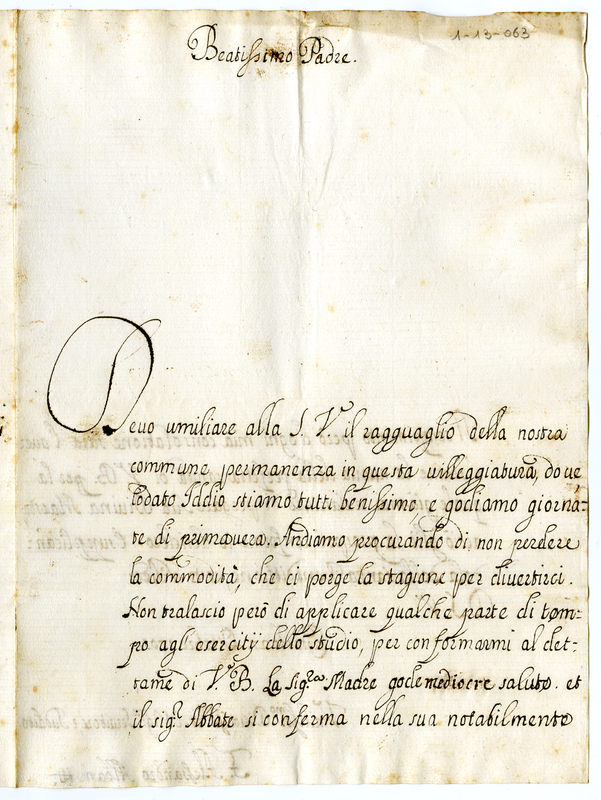 1-13-063
Beatissimo Padre.
Devo umiliare alla S. Vrã il ragguaglio della nostra
commune permanenza in questa villeggiatura, dove,
lodato Iddio stiamo tutti benissimo, e godiamo giorna:
te di primavera. Andiamo procurando di non perdere
la commodità, che ci porge la stagione per divertirci.
Non tralascio però di applicare qualche parte di tem:
po agl'esercitij dello studio, per conformarmi al det:
tame di V. B. La sig.ra Madre gode mediocre salute. et
il sig.r Abbate si conferma nella sua notabilmente